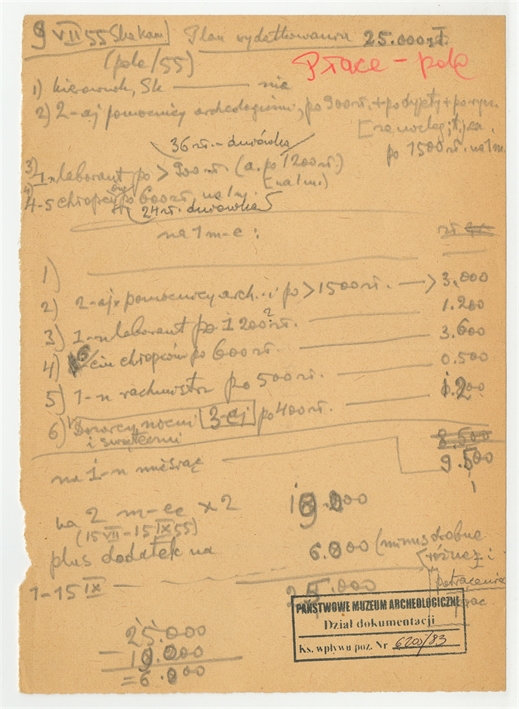 9 VII 55 Skakam Plan wydatkowania 25.000 zł.
(pole/55)
Płace – pole
1) kierownik, Sk — nie
2) 2-aj pomocnicy archeologiczni, po 900 zł. + podyjęty + po ryn.
[za noclegi t.j. ca.
36 zł. – dniówka
po 1500 zł. na 1 m
3) 1-n laborant po > 900 zł. (a. po 1200 zł.)
[na 1 m.]
4) 4-5 chłopców po 600 zł. na 1 m.
24 zł. dniówka
na 1 m-c: zł
1)
2) 2-aj pomocnicy arch. i po > 1500 zł. —> 3.000
3) 1-n laborant po 1200 zł. ? 1.200
4) 6 ciu chłopców po 600 zł. 3.600
5) 1-n rachmistrz po 500 zł. 0.500
6) Dozorcy nocni 3-ej po 400 zł. 1.200
i świąteczni
8.500
na 1-n miesiąc 9.500
na 2 m-ce x 2 19.000
(15 VII – 15 IX 55)
plus dodatek na 6.000 (minus drobne
różne i
1-15 IX 25.000 potrącenia
PAŃSTWOWE MUZEUM ARCHEOLOGICZNE
Dział dokumentacji
Ks. wpływu poz. Nr 6200/83
25.000
– 19.000
= 6.000